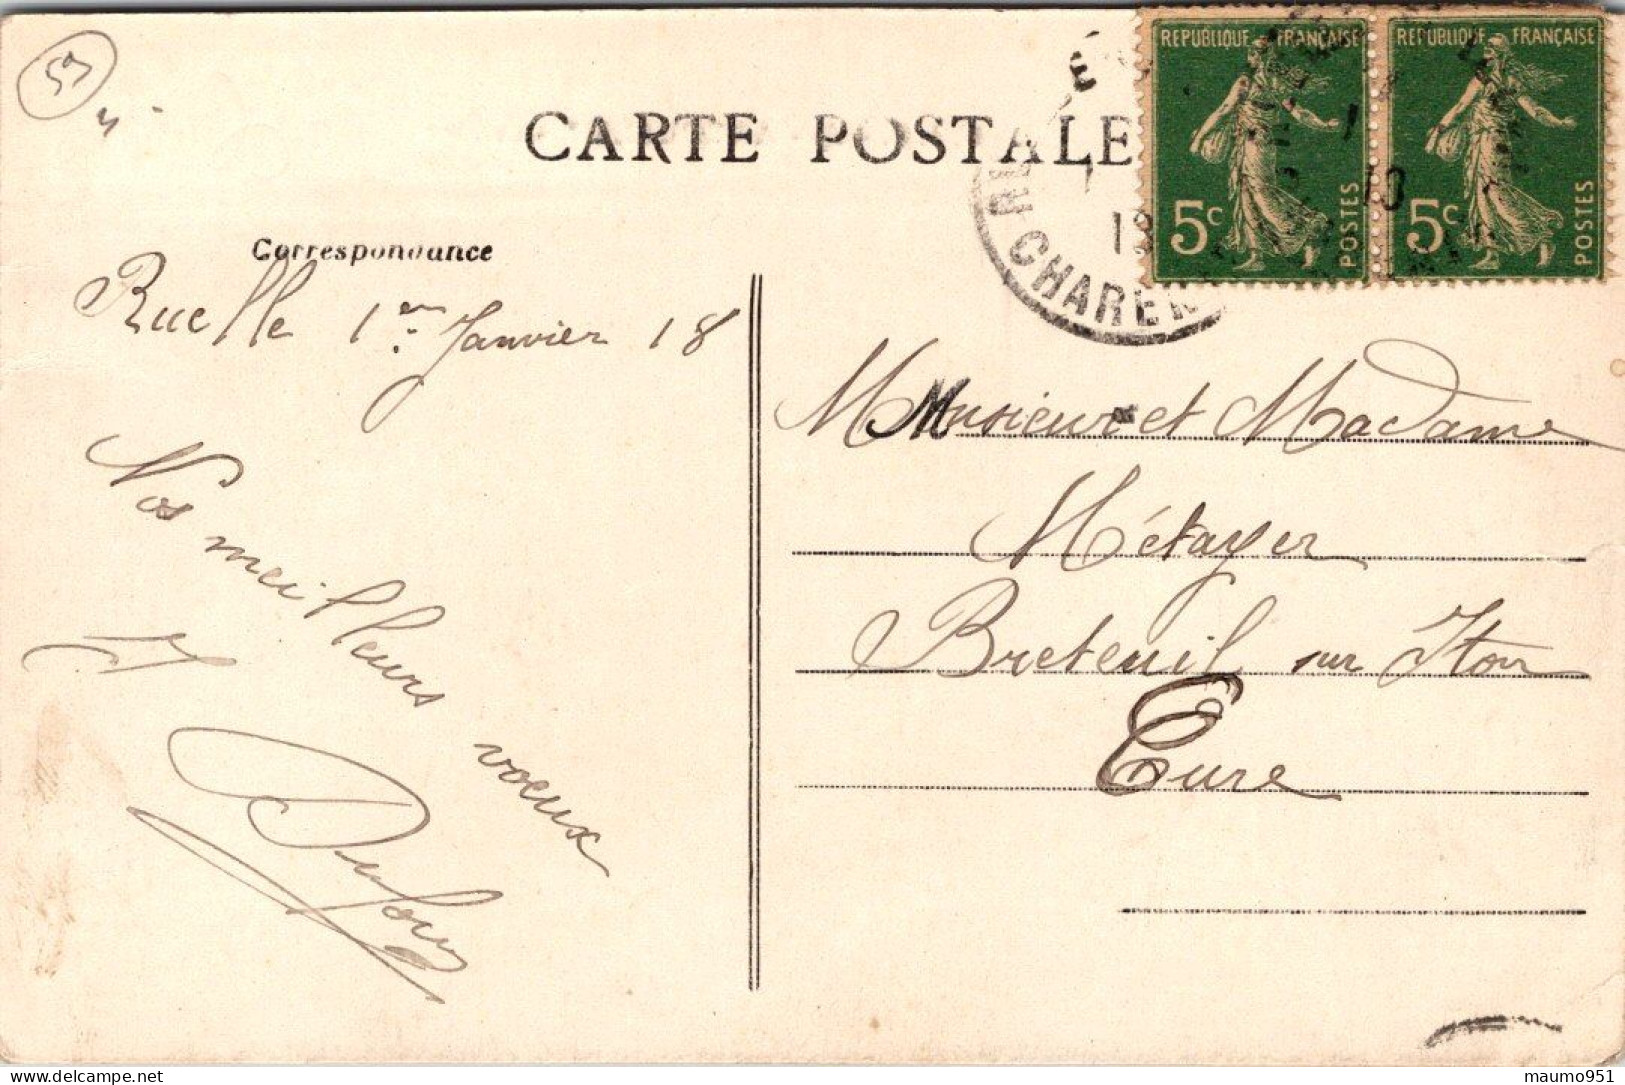 59
CARTE POSTALE
REPUBLIQUE FRANÇAISE
5c
POSTES
REPUBLIQUE FRANÇAISE
5c
POSTES
CHAREN
Correspondance
Ruelle 1er Janvier 18
Nos meilleurs voeux
Dufour
Monsieur et Madame
Métayer
Breteuil sur Iton
Eure
delcampe.net
maumo951